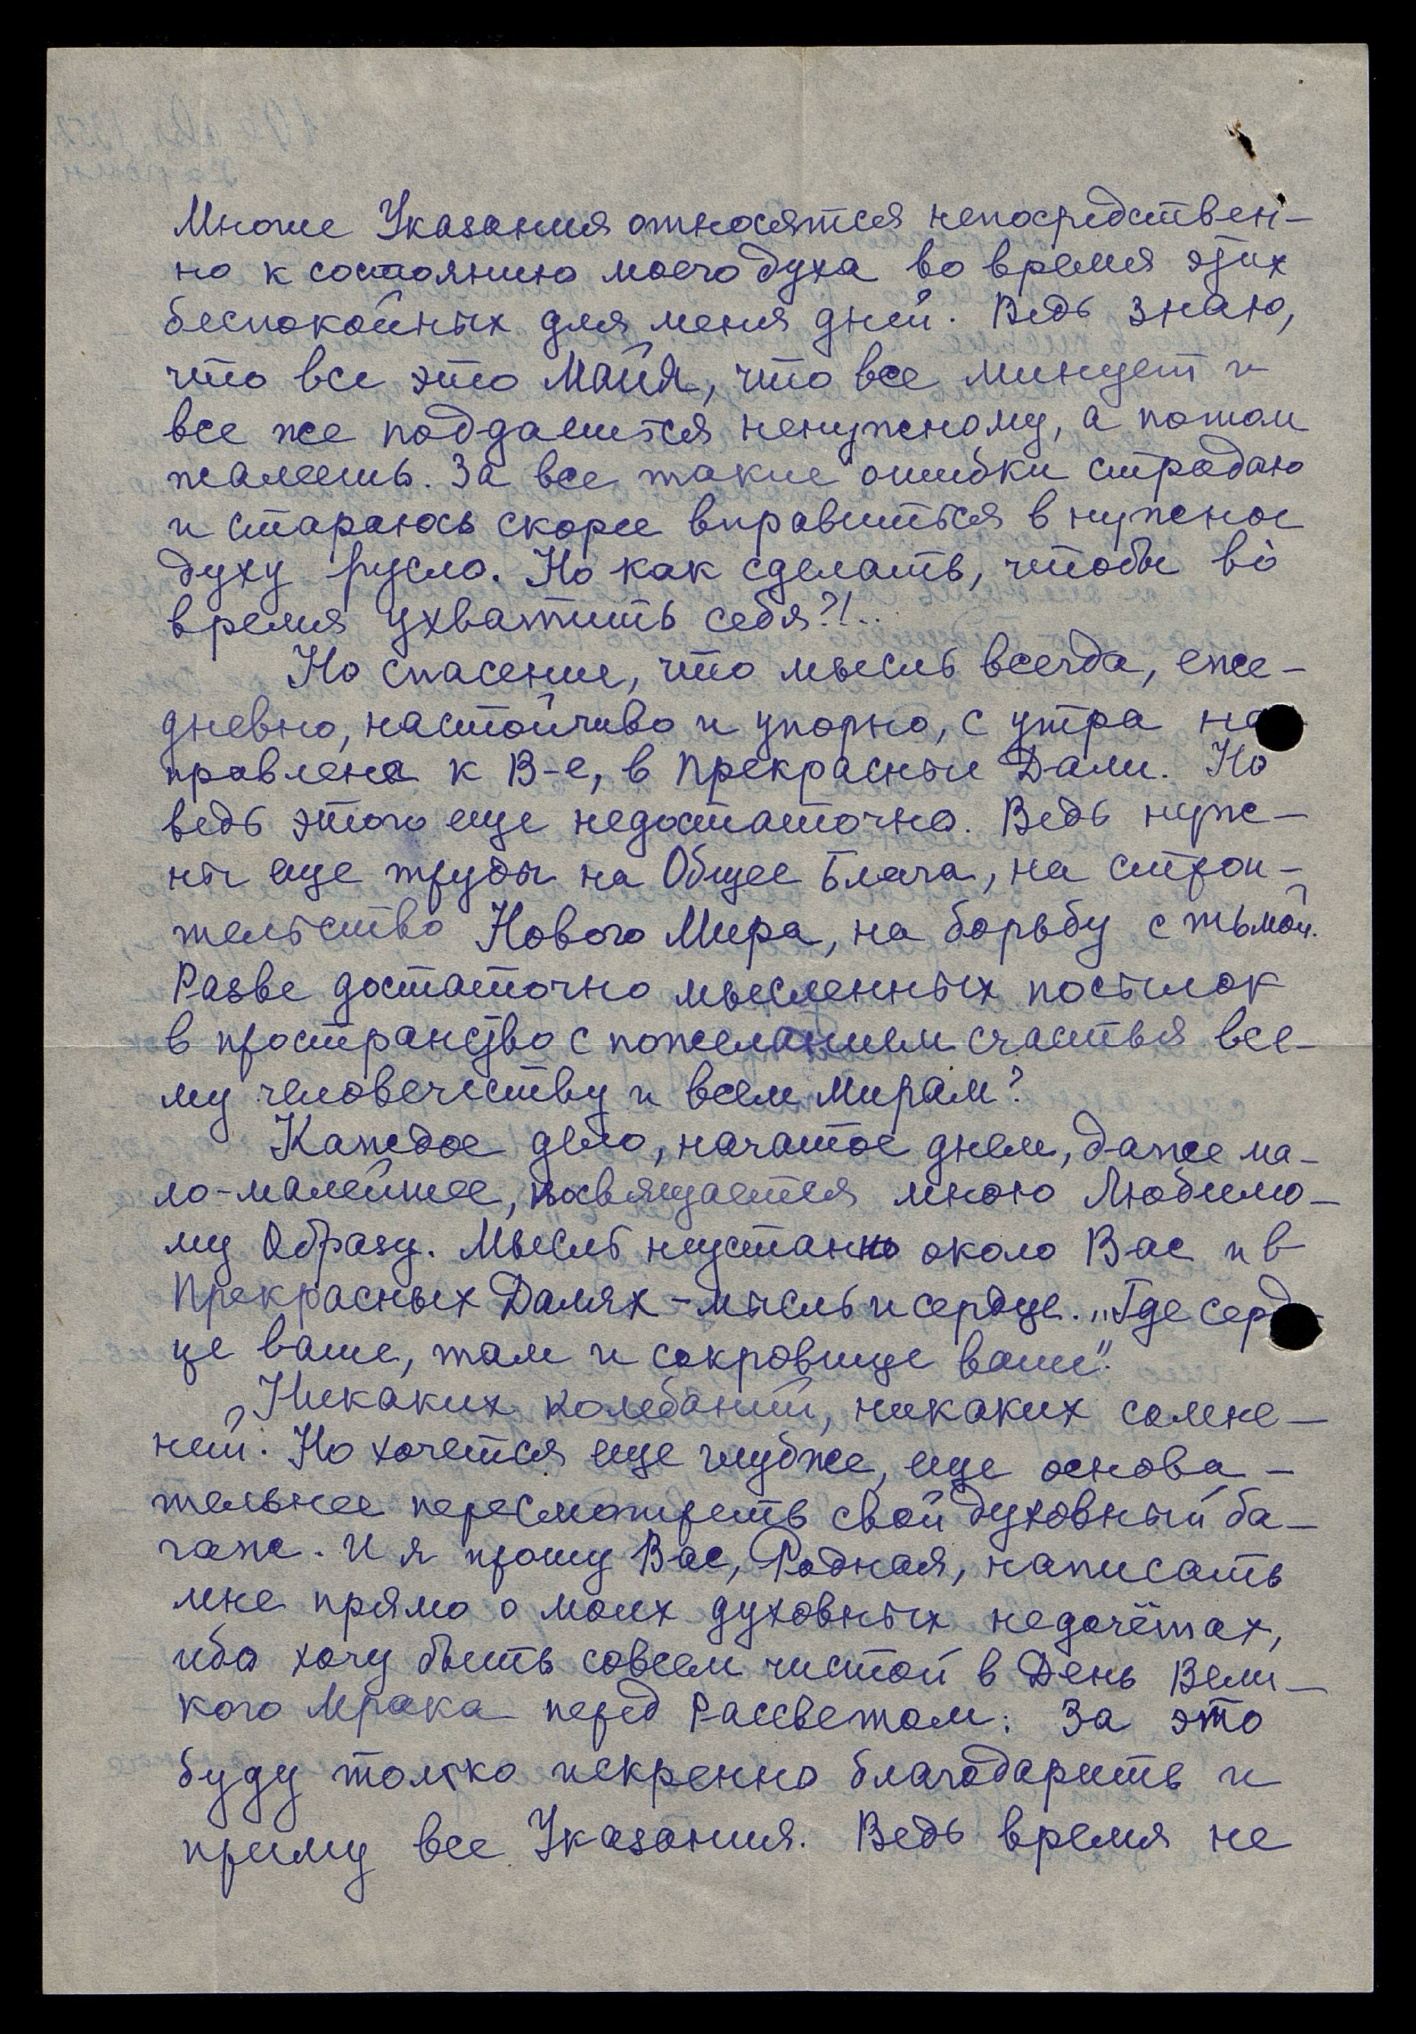 Многие Указания относятся непосредствен-
но к состоянию моего духа во время этих
беспокойных для меня дней. Ведь знаю,
что все это Майя, что все минует и
все же поддаешься ненужному, а потом
жалеешь. За все такие ошибки страдаю
и стараюсь скорее вправиться в нужное
духу русло. Но как сделать, чтобы во
время ухватить себя?!..
Но спасение, что мысль всегда, еже-
дневно, настойчиво и упорно, с утра на
правлена к В-е, в Прекрасные Дали. Но
ведь этого еще недостаточно. Ведь нуж-
ны еще труды на Общее Благо, на строи-
тельство Нового Мира, на борьбу с тьмой.
Разве достаточно мысленных посылок
в пространство с пожеланием счастья все-
му человечеству и всем мирам?
Каждое дело, начатое днем, даже ма-
ло-малейшее, посвящается мною Любимо-
му Образу. Мысль неустанно около Вас и в
Прекрасных Далях - мысль и сердце. „Где серд-
це ваше, там и сокровище ваше".
Никаких колебаний, никаких сомне-
ний. Но хочется еще глубже, еще основа-
тельнее пересмотреть свой духовный ба-
гаж. И я прошу Вас, Родная, написать
мне прямо о моих духовных недочётах,
ибо хочу быть совсем чистой в День Вели-
кого Мрака перед Рассветом. За это
буду только искренно благодарить и
приму все Указания. Ведь время не